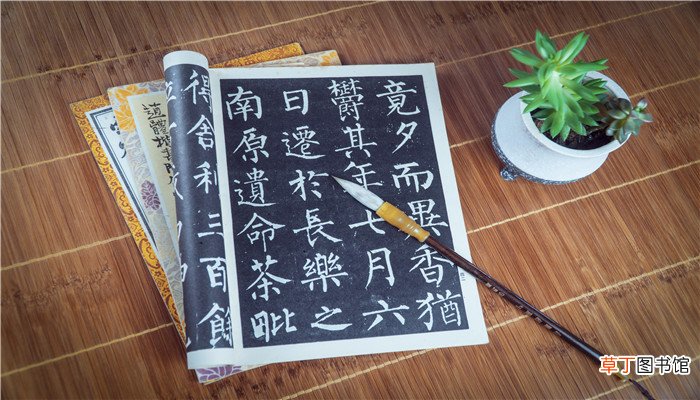 竟夕而異香猶
欝其年七月六
日遷於長樂之
南原遺命茶毗
得舍利三百餘
草丁图书馆